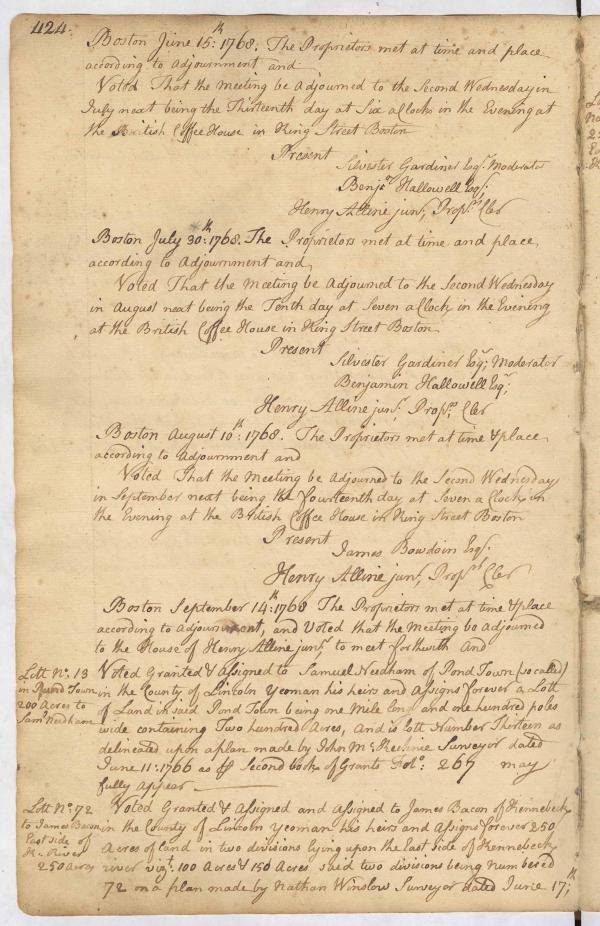 424.
Boston June 15th: 1768. The Proprietors met at time and place
according to Adjournment and
Voted That the Meeting be Adjourned to the Second Wednesday in
July next being the Thirteenth day at Six a Clock in the Evening at
the British Coffee House in King Street Boston
Present
Silvester Gardiner Esqr. Moderator
Benja. Hallowell Esq;
Henry Alline junr, Propr. Cler
Boston July 30th: 1768. The Proprietors met at time and place,
according to Adjournment and,
Voted That the Meeting be Adjourned to the Second Wednesday
in August next being the Tenth day at Seven a Clock in the Evening
at the British Coffee House in King Street Boston
Present
Silvester Gardiner Esqr; Moderator
Benjamin Hallowell Esqr;
Henry Alline junr, Propr. Cler
Boston August 10th: 1768. The Proprietors met at time & place
according to Adjournment and
Voted That the Meeting be Adjourned to the Second Wednesday
in September next being the Fourteenth day at Seven a Clock in
the Evening at the British Coffee House in King Street Boston
Present
James Bowdoin Esqr.
Henry Alline junr, Propr. Cler
Boston September 14th: 1768 The Proprietors met at time & place
according to Adjournment, and Voted that the Meeting be Adjourned
to the House of Henry Alline junr to meet forthwith And
Lott No. 13
in Pond Town
200 Acres to
Sam Needham
Voted Granted & Assigned to Samuel Needham of Pond Town (so called)
in the County of Lincoln Yeoman his heirs and Assigns forever a Lott
of Land in said Pond Town being one Mile long and one hundred poles
wide containing Two hundred Acres, and is lott Number Thirteen as
delineated upon a plan made by John McKechnie Surveyor dated
June 11: 1766 as Second book of Grants Folo: 267 may
fully appear
Lott No. 72
to James Bacon
East side of
K. River
250 Acres
Voted Granted & Assigned and assigned to James Bacon of Kennebeck
in the County of Lincoln Yeoman his heirs and Assigns forever 250
Acres of land in two divisions lying upon the East Side of Kennebeck
river vizt. 100 Acres & 150 Acres said two divisions being numbered
72 on a plan made by Nathan Winslow Surveyor dated June 17th;